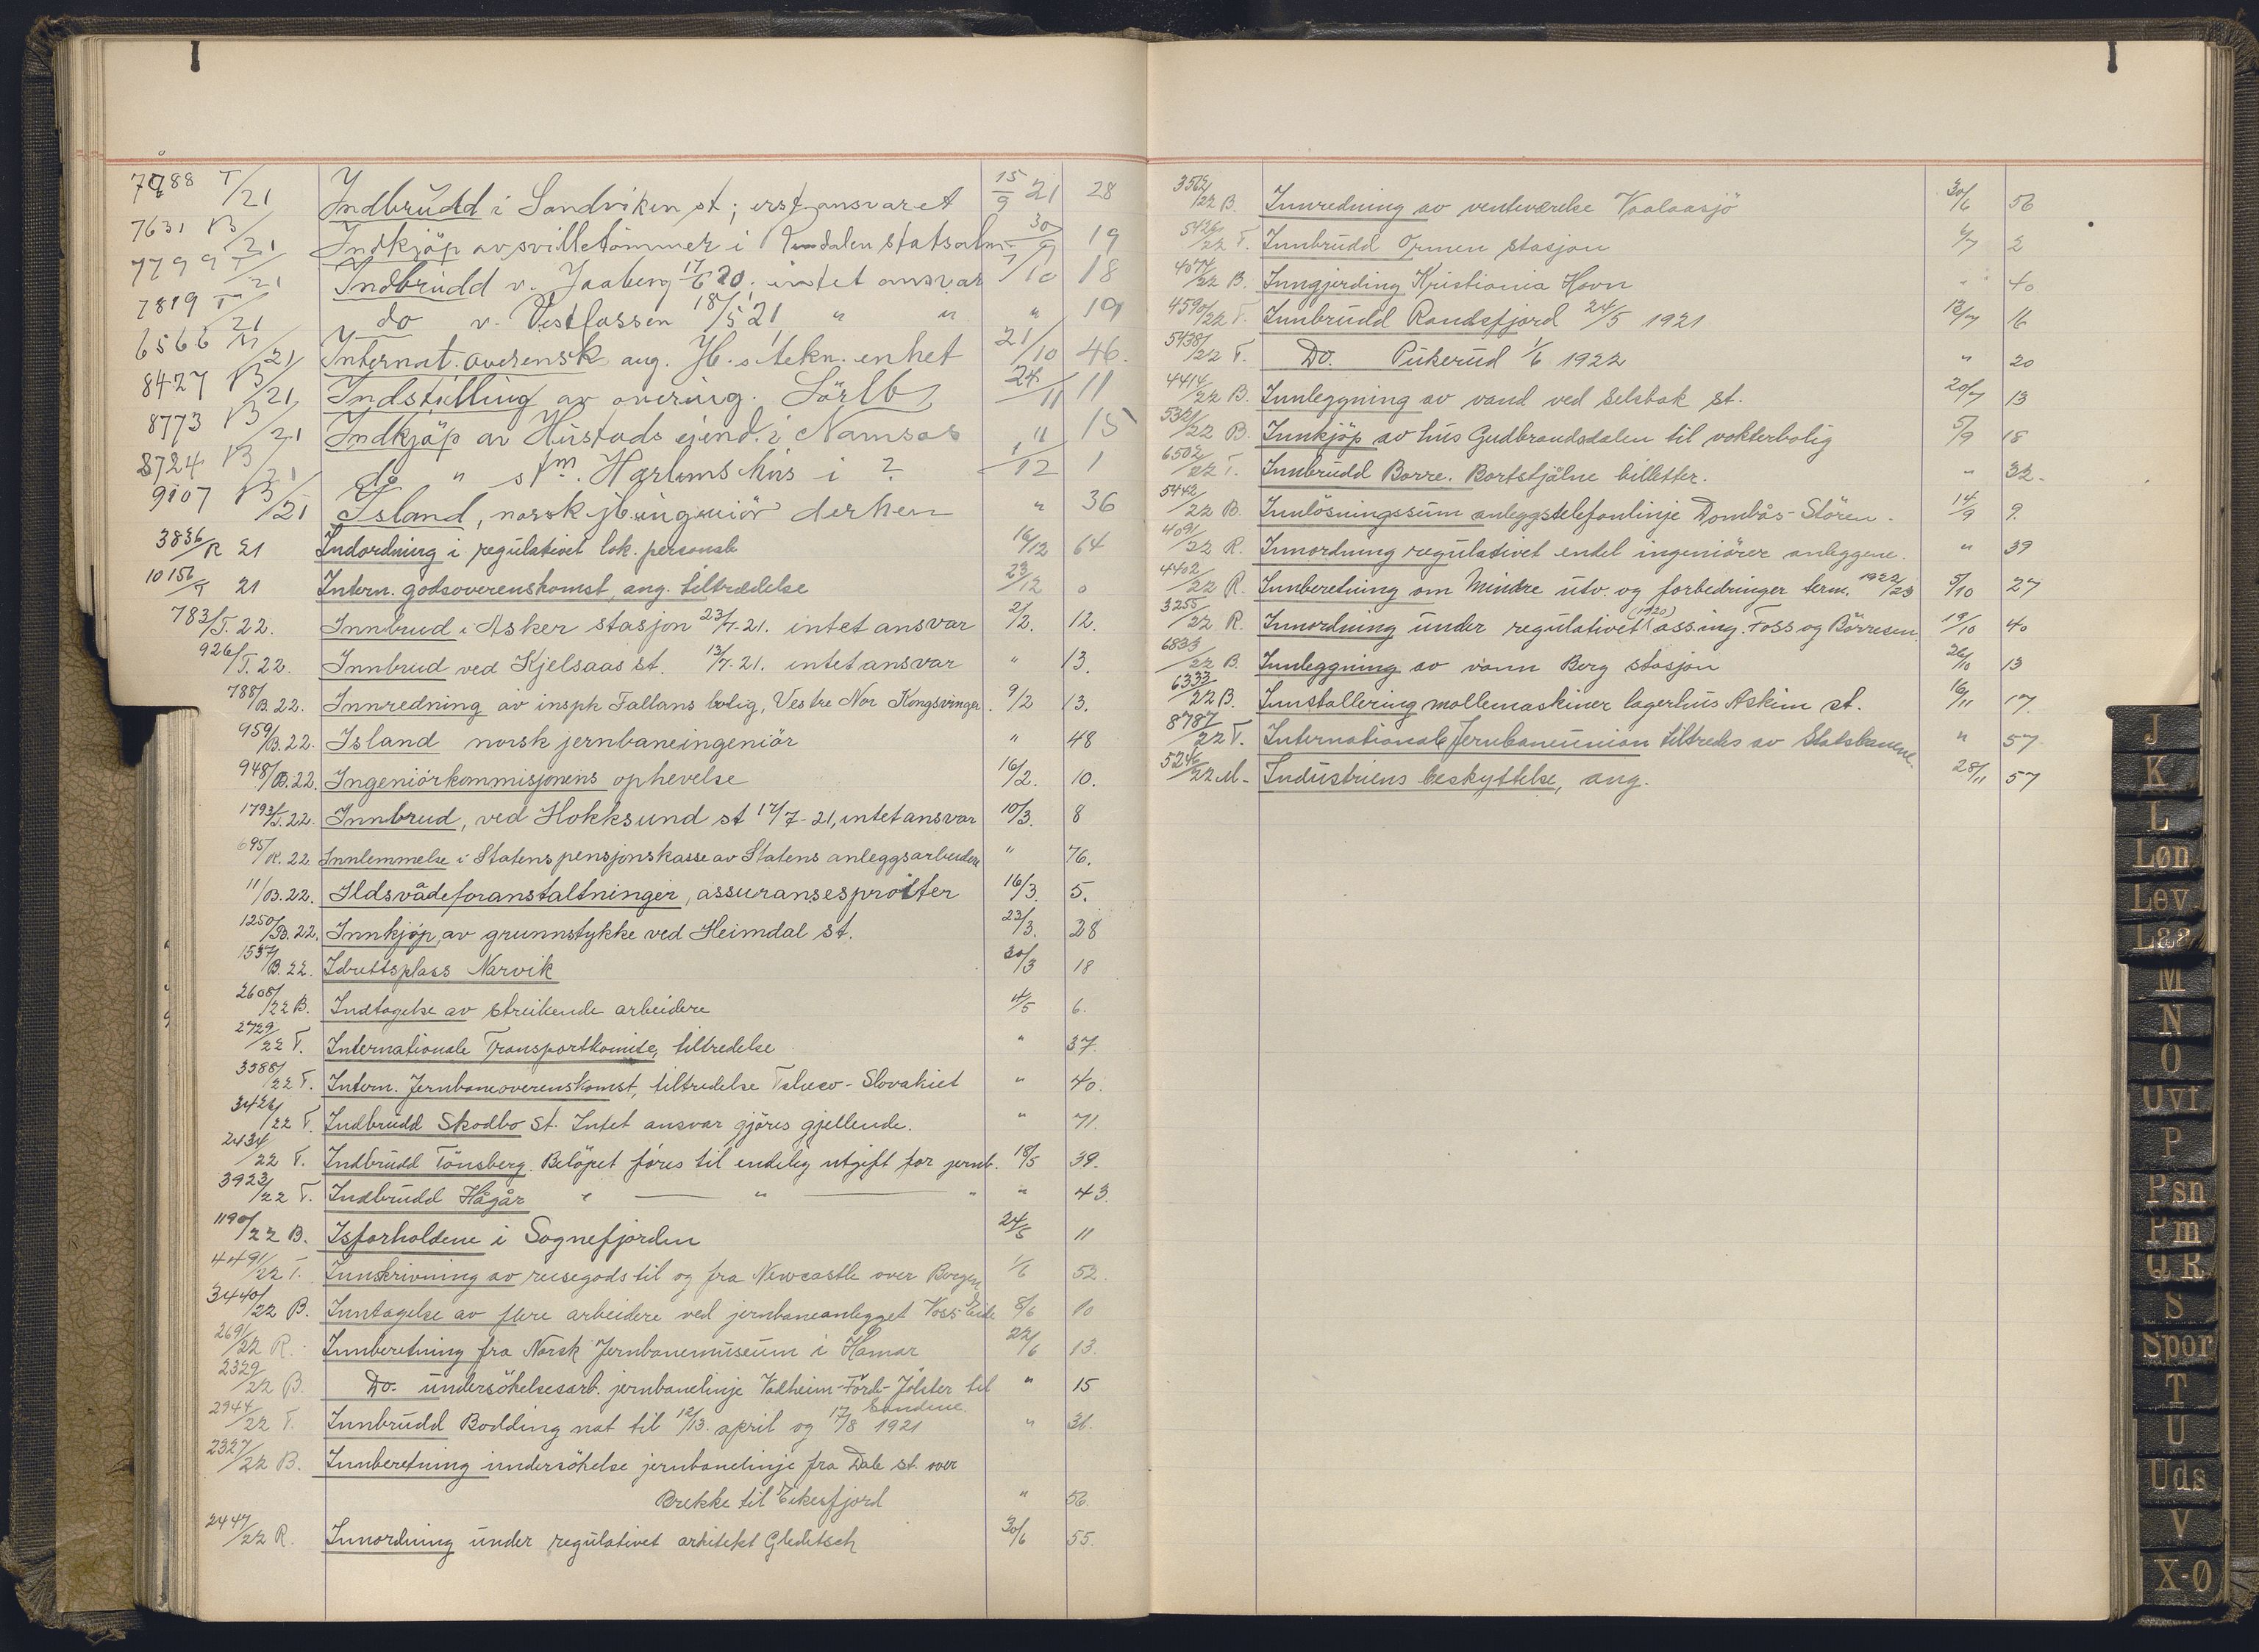 7788 T/21 Indbrudd i Sandviken st; erst.ansvaret 15/9 21 28
7631 B/21 Indkjöp av sviltetömmer i Rundalen statsalm. 30/9 19
7799 T/21 Indbrudd v. Jaaberg 17/6 20; intet ansvar 7/10 18
7819 T/21 do v. Vestfossen 18/5 21 " " " 19
6566 M/21 Internat. overensk. ang. Jb.s tekn. enhet 21/10 46.
8427 B/21 Indstilling av overing. Sörlb 24/11 11
8773 B/21 Indkjöp av Hustads ejend. i Namsos " 15
8724 B/21 do " Harlems hus i ? 1/12 1
9107 B/21 Island, norsk jb.ingeniör derhen " 36
3836/R 21 Indordning i regulativet lok. personale 16/12 64
10156/T 21 Intern. godsoverenskomst, ang. tiltrædelse 23/12 0
783/T. 22. Innbrud i Asker stasjon 23/7-21. intet ansvar 2/2. 12.
926/T. 22. Innbrud ved Kjelsaas st. 13/7-21. intet ansvar " 13.
788/B. 22. Innredning av inspk Fallans bolig, Vestre Nor Kongsvinger. 9/2 13.
959/B. 22. Island norsk jernbaneingeniör " 48
948/B. 22. Ingeniörkommisjonens ophevelse 16/2. 10.
1793/T. 22. Innbrud, ved Hokksund st 17/7-21, intet ansvar 10/3. 8
695/R. 22 Innlemmelse i Statens pensjonskasse av Statens anleggsarbeidere " 76.
11/B. 22. Ildsvådeforanstaltninger, assuransespröiter 16/3. 5.
1250/B. 22. Innkjöp, av grunnstykke ved Heimdal st. 23/3. 28
1557/B. 22. Idrettsplass Narvik 30/3 18
2608/22 B. Indtagelse av streikende arbeidere 4/5 6.
2729/22 T. Internationale Transportkomite, tiltredelse " 37.
3588/22 T. Intern. Jernbaneoverenskomst, tiltredelse Tsheco-Slovakiet " 40.
3426/22 T. Indbrudd Skodbo St. Intet ansvar gjöres gjellende. " 71.
2434/22 T. Indbrudd Tönsberg. Belöpet föres til endelig utgift for jernb. 18/5 39.
3923/22 T. Indbrudd Hågår " — " — " " 43.
1190/22 B. Isforholdene i Sognefjorden 24/5 11
4491/22 T. Innskrivning av reisegods til og fra Newcastle over Bergen 1/6 52.
3440/22 B. Inntagelse av flere arbeidere ved jernbaneanlegget Voss-Eide 8/6 10
2691/22 R. Innberetning fra Norsk Jernbanemuseum i Hamar 22/6 13.
2329/22 B. Do. undersökelsesarb. jernbanelinje Vadheim-Förde-Jölster til " 15
Sandene
2944/22 T. Innbrudd Bodding nat til 12/13. april og 17/8 1921 " 31.
2327/22 B. Innberetning undersökelse jernbanelinje fra Dale st. over
Brekke til Eikesfjord " 56.
2447/22 R. Innordning under regulativet arkitekt Gleditsch 30/6 55.
3562/22 B. Innredning av venteværelse Vaalaasjö 30/6 56
5426/22 T. Innbrudd Ormen stasjon 6/7 2
4074/22 B. Inngjerding Kristiania Havn " 40
4590/22 T. Innbrudd Randsfjord 24/5 1921 12/7 16
5438/22 T. Do. Pukerud 1/6 1922 " 20
4414/22 B. Innleggning av vand ved Selsbak st. 20/7 13
5321/22 B. Innkjöp av hus Gudbrandsdalen til vokterbolig 5/9 18
6502/22 T. Innbrudd Borre. Bortstjålne billetter. " 32.
5442/22 B. Innlösningssum anleggstelefonlinje Dombås-Stören. 14/9 9.
4091/22 R. Innordning regulativet endel ingeniörer anleggene. " 39
4402/22 R. Innberetning om Mindre utv. og forbedringer term. 1922/23 5/10 27
3255/22 R. Innordning under regulativet (1920) ass.ing. Foss og Börresen. 19/10 40
6833/22 B. Innleggning av vann Berg stasjon 26/10 13
6333/22 B. Innstallering mollemaskiner lagerhus Askim st. 16/11 17.
8787/22 T. Internationale Jernbaneunion tiltredes av Statsbanene. " 57
5246/22 M- Industriens beskyttelse, ang. 28/11 57
J
K
L
Løn
Lev.
Laa
M
N
O
Ovf
P
Psn
Pm
Q R
S
Spor
T
U
Uds
V
X-Ø